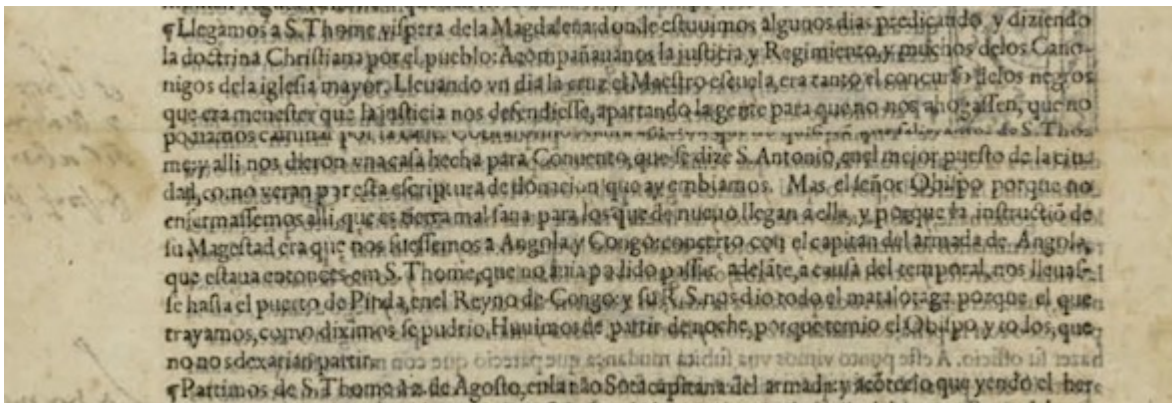 ¶Llegamos a S. Thome, vispera dela Magdalena: donde estuuimos algunos dias predicando, y diziendo
la doctrina Christiana por el pueblo: Acompañauanos la justicia y Regimiento, y muchos delos Cano-
nigos dela iglesia mayor. Lleuando vn dia la cruz el Maestro escuela era tanto el concurso delos negros
que era menester que la justicia nos defendiesse, apartando la gente para que no nos ahogassen, que no
podiamos caminar por la calle. de S. Tho-
me, y alli nos dieron vna casa hecha para Conuento, que se dize S. Antonio, enel mejor puesto de la ciu-
dad, como veran por esta escriptura de donacion que ay embiamos. Mas el señor Obispo porque no
enfermassemos alli, que es tierra mal sana para los que de nueuo llegan a ella, y porque la instructiõ de
su Magestad era que nos fuessemos a Angola y Congo: concerto con el capitan del armada de Angola,
que estaua entonces em S. Thome, que no auia podido passar adelãte, a causa del temporal, nos lleuas-
se hasta el puerto de Pinda, enel Reyno de Congo: y su R. S. nos dio todo el matalotaga porque el que
trayamos, como diximos se pudrio. Huuimos de partir de noche, porque temio el Obispo y todos, que
no nos dexarian partir.
¶Partimos de S. Thome a 2. de Agosto, enla não capitana del armada: y acõtecio que yendo el her